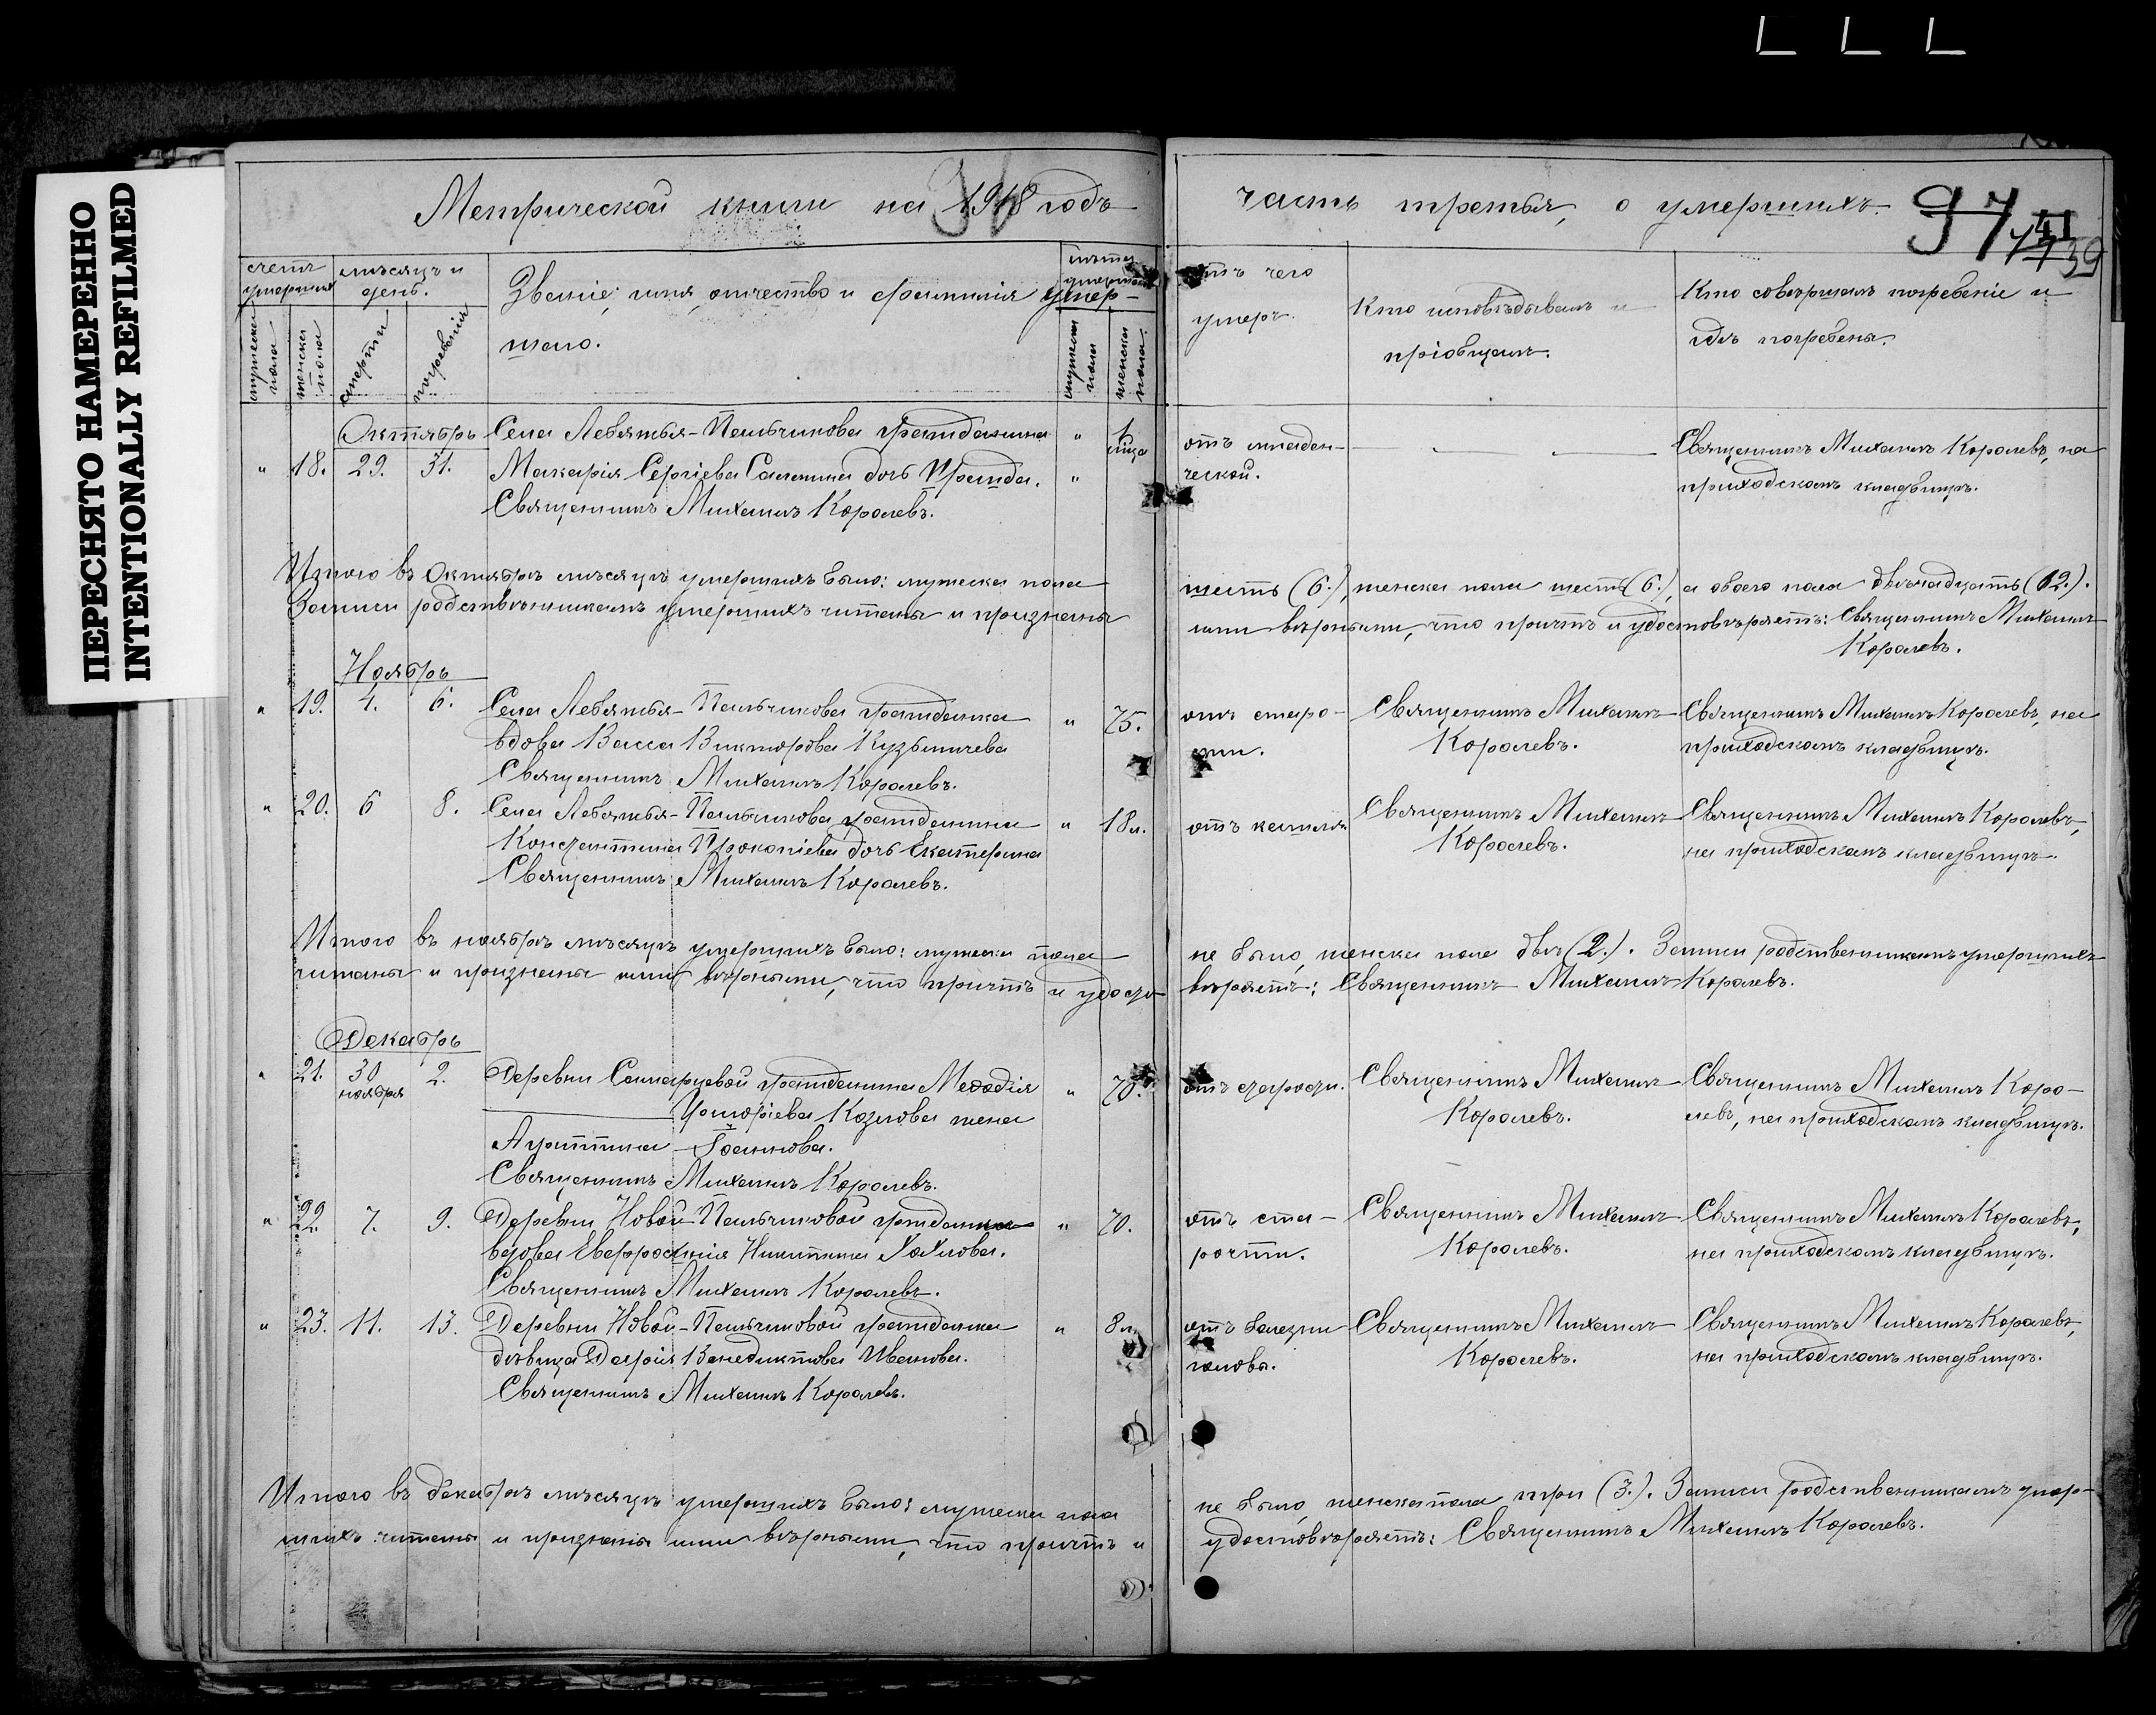 ПЕРЕСНЯТО НАМЕРЕННО
INTENTIONALLY REFILMED
Метрической книги на 1918 годъ
часть третья, о умершихъ.
97
41
39
счетъ умершихъ
мѣсяцъ и день.
Званіе, имя, отчество и фамилія умер-
шаго.
лѣта умершаго
отъ чего
умеръ.
Кто исповѣдывалъ и
пріобщалъ.
Кто совершалъ погребеніе и
гдѣ погребены.
мужеска пола
женска пола
смерти
погребенія
мужеска пола
женска пола.
Октябрь
Села Лебяжья-Пальчикова гражданина " 1 мца
отъ младен-
Священникъ Михаилъ Королевъ, на
" 18. 29. 31. Макарія Сергіева дочь "
ческой.
приходскомъ кладбищѣ.
Священникъ Михаилъ Королевъ.
Итого въ Октябрѣ мѣсяцѣ умершихъ было: мужеска пола
шесть (6.), женска пола шесть (6.), а обоего пола двѣнадцать (12.).
Записи родственникамъ умершихъ читаны и признаны
ими вѣрными, что причтъ и удостовѣряетъ: Священникъ Михаилъ
Королевъ.
Ноябрь
" 19. 4. 6. Села Лебяжья-Пальчикова гражданка " 75.
отъ старо-
Священникъ Михаилъ
Священникъ Михаилъ Королевъ, на
вдова Васса Викторова Кузьмичева
сти.
Королевъ.
приходскомъ кладбищѣ.
Священникъ Михаилъ Королевъ.
" 20. 6 8. Села Лебяжья-Пальчикова гражданина " 18 л.
отъ кашля
Священникъ Михаилъ
Священникъ Михаилъ Королевъ,
Константина Прокопіева дочь Екатерина
Королевъ.
на приходскомъ кладбищѣ.
Священникъ Михаилъ Королевъ.
Итого въ ноябрѣ мѣсяцѣ умершихъ было: мужеска пола
не было, женска пола двѣ (2.). Записи родственникамъ умершихъ
читаны и признаны ими вѣрными, что причтъ и удосто-
вѣряетъ: Священникъ Михаилъ Королевъ.
Декабрь
" 21. 30 ноября 2. Деревни гражданина Меѳодія " 70.
отъ старости.
Священникъ Михаилъ
Священникъ Михаилъ Коро-
Козлова жена
Королевъ.
левъ, на приходскомъ кладбищѣ.
Агриппина Іоаннова.
Священникъ Михаилъ Королевъ.
" 22. 7. 9. Деревни Новой-Пальчиковой гражданка " 70.
отъ ста-
Священникъ Михаилъ
Священникъ Михаилъ Королевъ,
вдова Евфросинія Никитина Хохлова.
рости.
Королевъ.
на приходскомъ кладбищѣ.
Священникъ Михаилъ Королевъ.
" 23. 11. 13. Деревни Новой-Пальчиковой гражданка " 8 л.
отъ болезни
Священникъ Михаилъ
Священникъ Михаилъ Королевъ,
дѣвица Дарія Венедиктова Иванова.
головы.
Королевъ.
на приходскомъ кладбищѣ.
Священникъ Михаилъ Королевъ.
Итого въ декабрѣ мѣсяцѣ умершихъ было: мужеска пола
не было, женска пола три (3.). Записи родственникамъ умер-
шихъ читаны и признаны ими вѣрными, что причтъ и
удостовѣряетъ: Священникъ Михаилъ Королевъ.